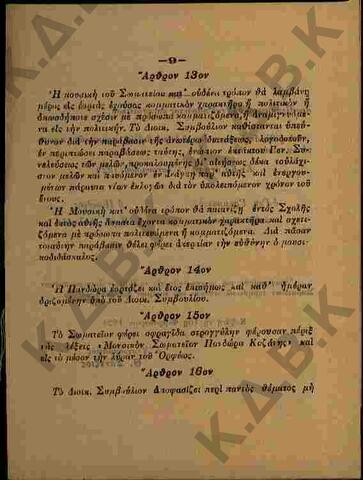 — 9 —
Ἄρθρον 13ον
Ἡ μουσικὴ τοῦ Σωματείου κατ' οὐδένα τρόπον θὰ λαμβάνῃ
μέρος εἰς ἑορτὰς ἐχούσας κομματικὸν χαρακτῆρα ἢ πολιτικὸν ἢ
ὁπωσδήποτε σχέσιν μὲ πρόσωπα κομματιζόμενα, ἢ ἀναμιγνυόμε-
να εἰς τὴν πολιτικήν. Τὸ Διοικ. Συμβούλιον καθίσταται ὑπεύ-
θυνον διὰ τὴν παράβασιν τῆς ἀνωτέρω διατάξεως, λογοδοτοῦν,
ἐν περιπτώσει παραβάσεως ταύτης, ἐνώπιον ἐκτάκτου Γεν. Συ-
νελεύσεως τῶν μελῶν, προκαλουμένης δι' αἰτήσεως δέκα τοὐλάχι-
στον μελῶν καὶ παυόμενον ἐν ἀνάγκῃ παρ' αὐτῆς καὶ ἐνεργου-
μένων πάραυτα νέων ἐκλογῶν διὰ τὸν ὑπολειπόμενον χρόνον τοῦ
ἔτους.
Ἡ Μουσικὴ κατ' οὐδένα τρόπον θὰ παιανίζῃ ἐντὸς Σχολῆς
καὶ ἐκτὸς αὐτῆς ᾄσματα ἔχοντα κομματικὸν χαρακτῆρα καὶ σχετι-
ζόμενα μὲ πρόσωπα πολιτευόμενα ἢ κομματιζόμενα. Διὰ πᾶσαν
τοιαύτην παράβασιν θέλει φέρει ἀκεραίαν τὴν εὐθύνην ὁ μουσι-
κοδιδάσκαλος.
Ἄρθρον 14ον
Ἡ Πανδώρα ἑορτάζει κατ' ἔτος ἐπισήμως καὶ καθ' ἡμέραν
ὁριζομένην ὑπὸ τοῦ Διοικ. Συμβουλίου.
Ἄρθρον 15ον
Τὸ Σωματεῖον φέρει σφραγῖδα στρογγύλην φέρουσαν πέριξ
τὰς λέξεις «Μουσικὸν Σωματεῖον Πανδώρα Κοζάνης» καὶ
εἰς τὸ μέσον τὴν λύραν τοῦ Ὀρφέως.
Ἄρθρον 16ον
Τὸ Διοικ. Συμβούλιον Ἀποφασίζει περὶ παντὸς θέματος μὴ
Κ.Δ.Β.Κ
Κ.Δ.Β.Κ